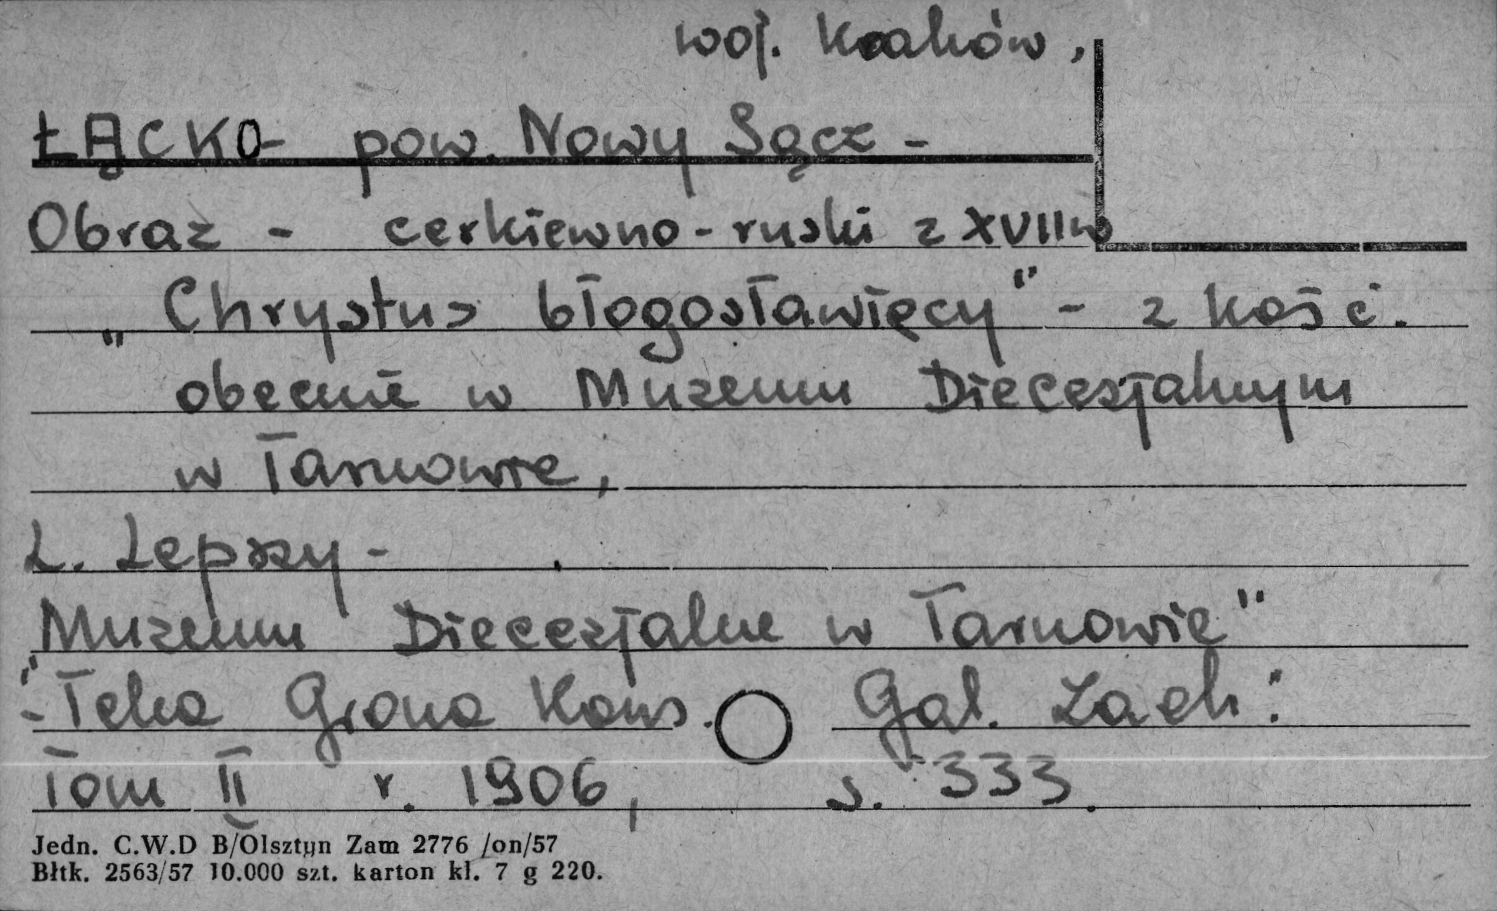 woj. Kraków,
ŁĄCKO - pow. Nowy Sącz -
Obraz - cerkiewno-ruski z XVII w
„Chrystus błogosławięcy" - z kość.
obecnie w Muzeum Diecezjalnym
w Tarnowie,
L. Lepszy -
„Muzeum Diecezjalne w Tarnowie"
- Teka Grona Kons. Gal. Zach."
Tom II r. 1906, s. 333.
Jedn. C.W.D B/Olsztyn Zam 2776 /on/57
Błtk. 2563/57 10.000 szt. karton kl. 7 g 220.